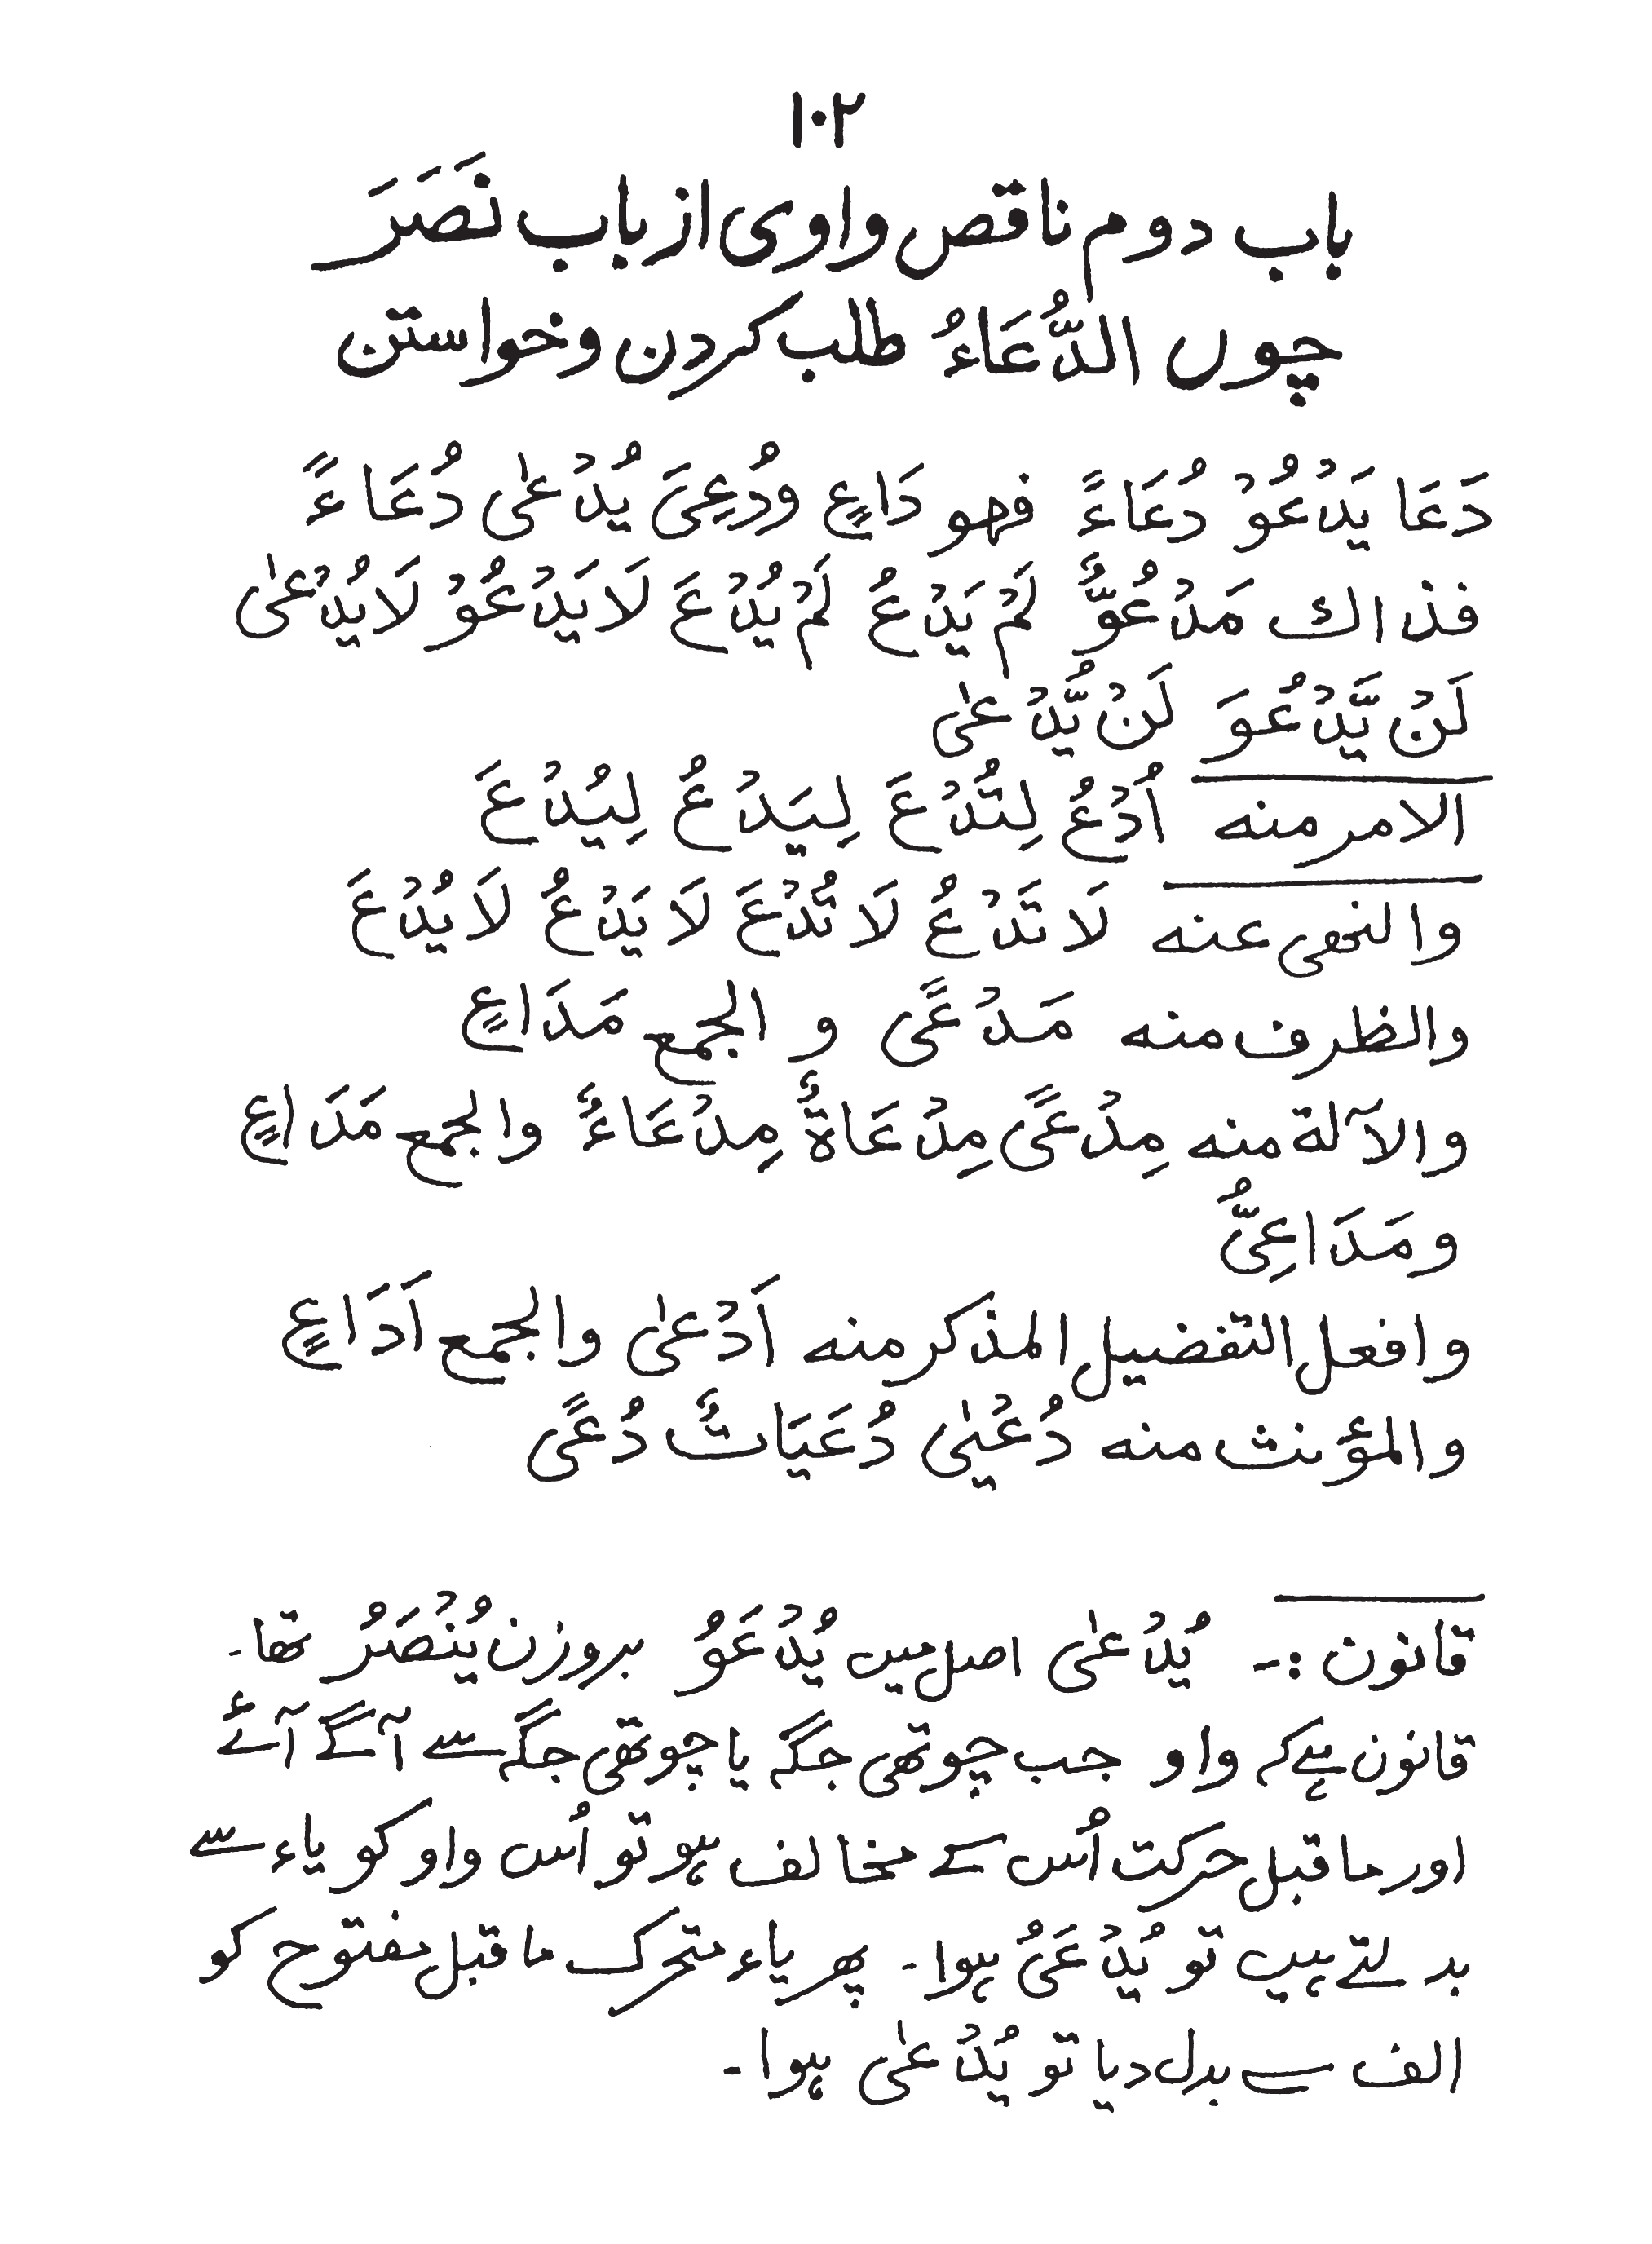 ۱۰۲
باب دوم ناقص واوی از باب نَصَرَ
چوں الدُّعَاءُ طلب کردن و خواستن
دَعَا يَدْعُوْ دُعَاءً فهو دَاعٍ ودُعِیَ يُدْعٰی دُعَاءً
فذاك مَدْعُوٌّ لَمْ يَدْعُ لَمْ يُدْعَ لَا يَدْعُوْ لَا يُدْعٰی
لَنْ يَّدْعُوَ لَنْ يُّدْعٰی
الامر منه اُدْعُ لِتُدْعَ لِيَدْعُ لِيُدْعَ
والنهی عنه لَا تَدْعُ لَا تُدْعَ لَا يَدْعُ لَا يُدْعَ
والظرف منه مَدْعًی و الجمع مَدَاعٍ
والآلة منه مِدْعًی مِدْعَاةٌ مِدْعَاءٌ والجمع مَدَاعٍ
و مَدَاعِیُّ
وافعل التفضیل المذکر منه اَدْعٰی والجمع اَدَاعٍ
والمؤنث منه دُعْیٰی دُعَيَاتٌ دُعًی
قانون :۔ يُدْعٰی اصل میں يُدْعَوُ بروزن يُنْصَرُ تھا۔
قانون ہے کہ واو جب چوتھی جگہ یا چوتھی جگہ سے آگے آئے
اور ماقبل حرکت اُس کے مخالف ہو تو اُس واو کو یاء سے
بدلتے ہیں تو يُدْعَیُ ہوا۔ پھر یاء متحرک ماقبل مفتوح کو
الف سے بدل دیا تو يُدْعٰی ہوا۔